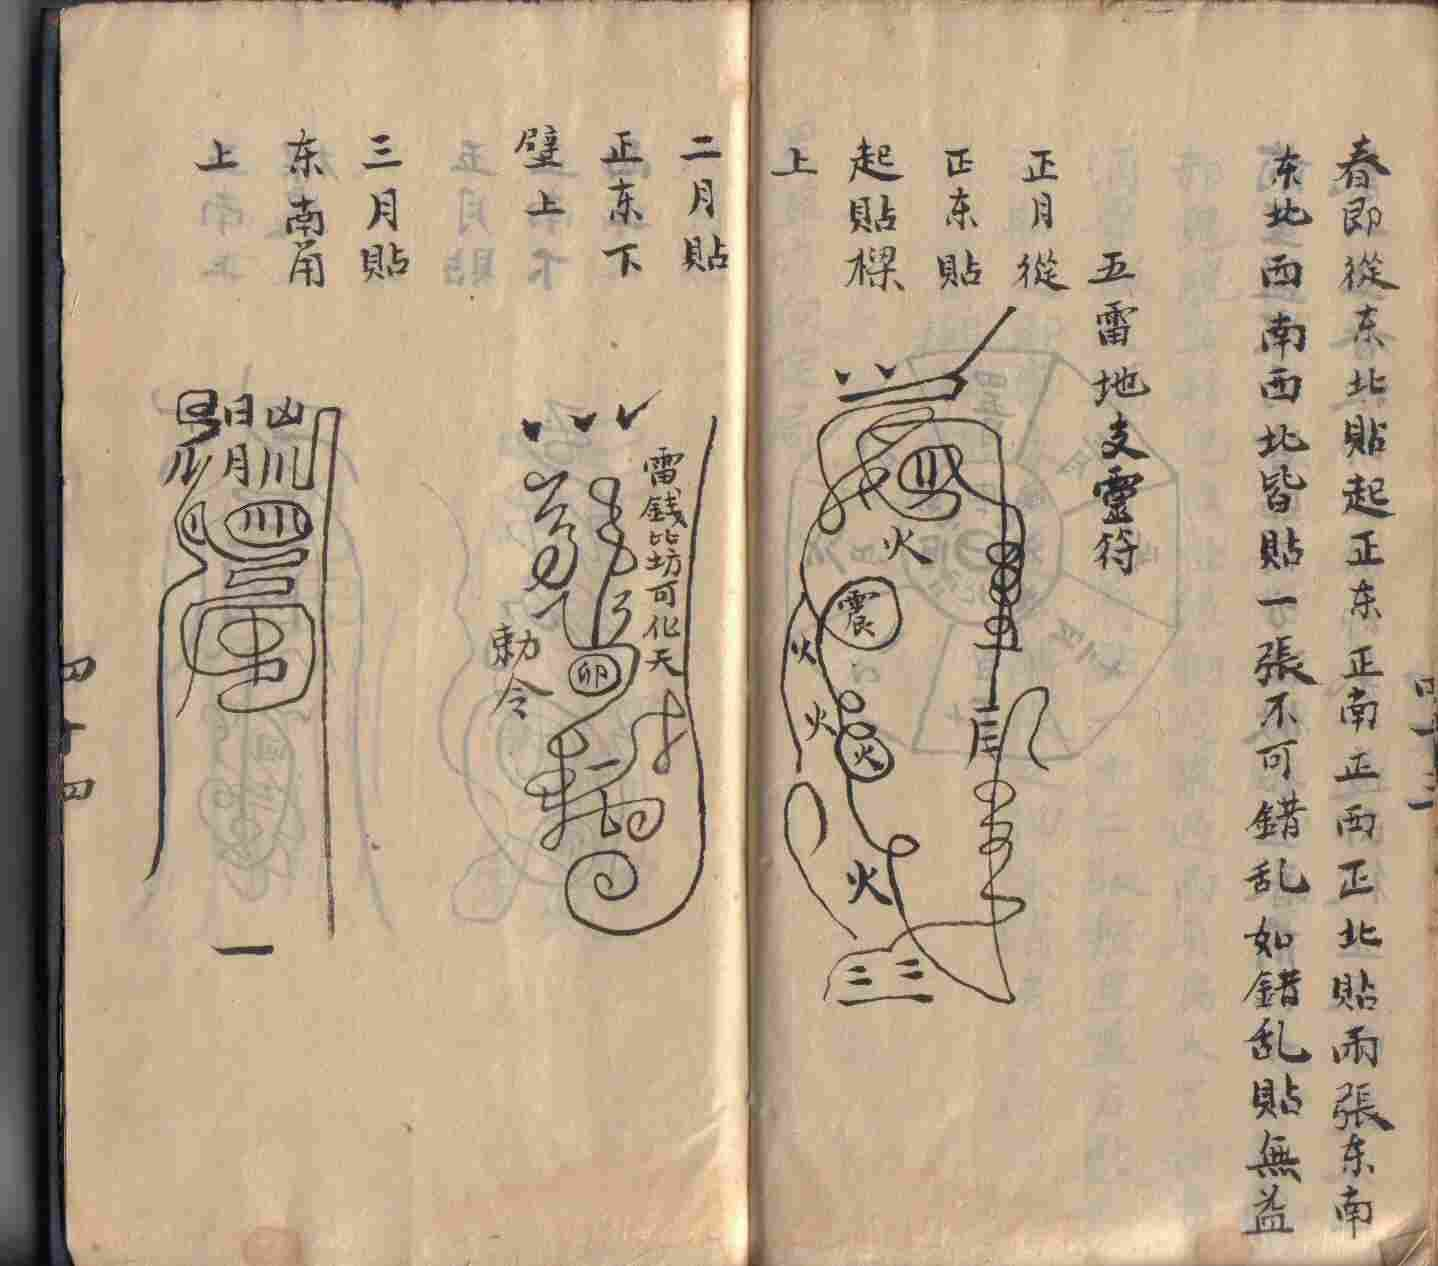 春即從东北貼起正东正南正西正北貼兩張东南
东北西南西北皆貼一張不可錯乱如錯乱貼無益
五雷地支靈符
正月從
正东貼
起貼樑
上
火
震
火
火
火
火
二月貼
正东下
壁上
雷錢此坊可化天
卯
勅令
三月貼
东南角
上
日月
一
四十四